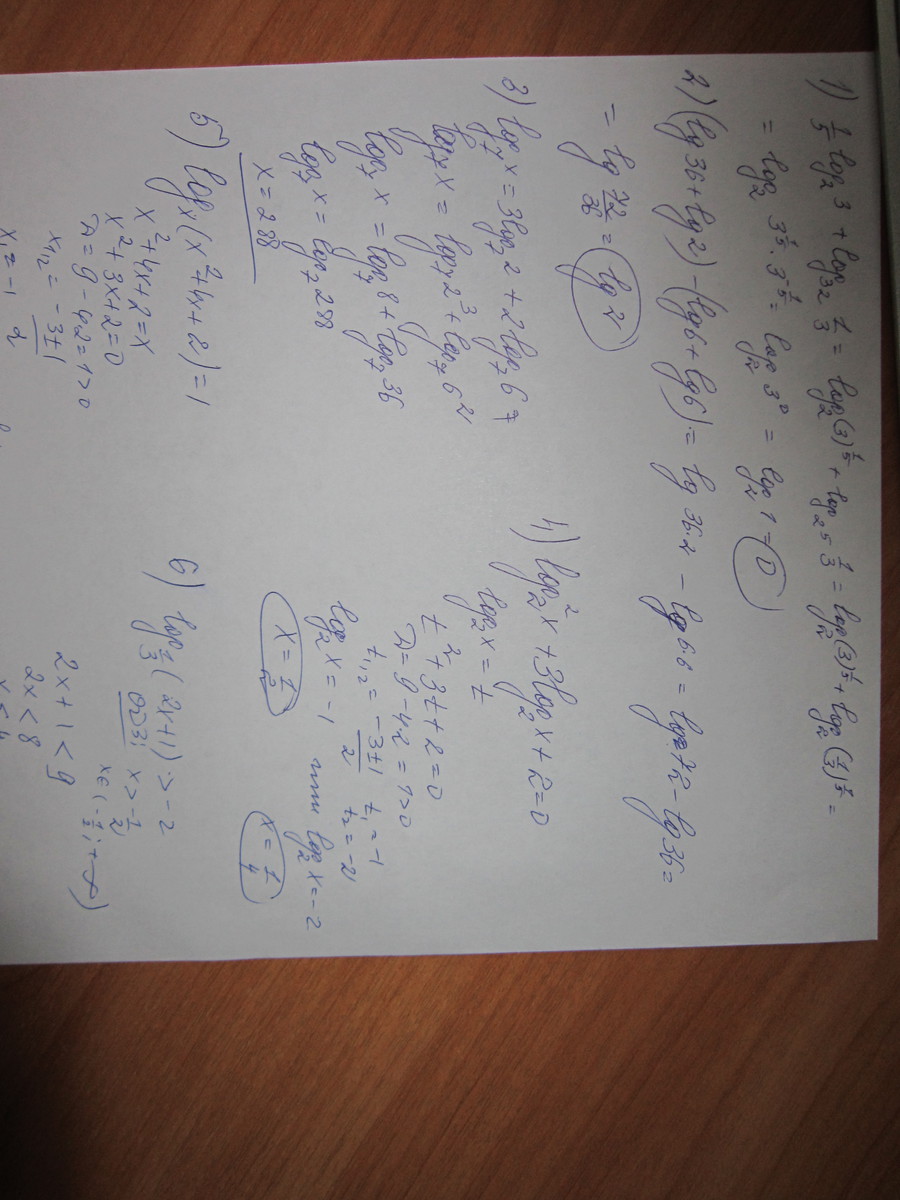 1) 1/5 log₂ 3 + log₃₂ 1/3 = log₂(3)^(1/5) + log₂⁵ 1/3 = log₂(3)^(1/5) + log₂(1/3)^(1/5) =
= log₂ 3^(1/5) · 3^(-1/5) = log₂ 3⁰ = log₂ 1 = 0
2) (lg 36 + lg 2) - (lg 6 + lg 6) = lg 36·2 - lg 6·6 = lg 72 - lg 36 =
= lg 72/36 = lg 2
3) log₇ x = 3log₇ 2 + 2log₇ 6
log₇ x = log₇ 2³ + log₇ 6²
log₇ x = log₇ 8 + log₇ 36
log₇ x = log₇ 288
x = 288
4) log₂² x + 3log₂ x + 2 = 0
log₂ x = t
t² + 3t + 2 = 0
Д = 9 - 4·2 = 1 > 0
t₁,₂ = (-3±1)/2 t₁ = -1
t₂ = -2
log₂ x = -1 или log₂ x = -2
x = 1/2 x = 1/4
5) logₓ(x² + 4x + 2) = 1
x² + 4x + 2 = x
x² + 3x + 2 = 0
Д = 9 - 4·2 = 1 > 0
x₁,₂ = (-3±1)/2
x₁ = -1
6) log_(1/3)(2x+1) > -2
ОДЗ: x > -1/2
x ∈ (-1/2; +∞)
2x + 1 < 9
2x < 8
x < 4